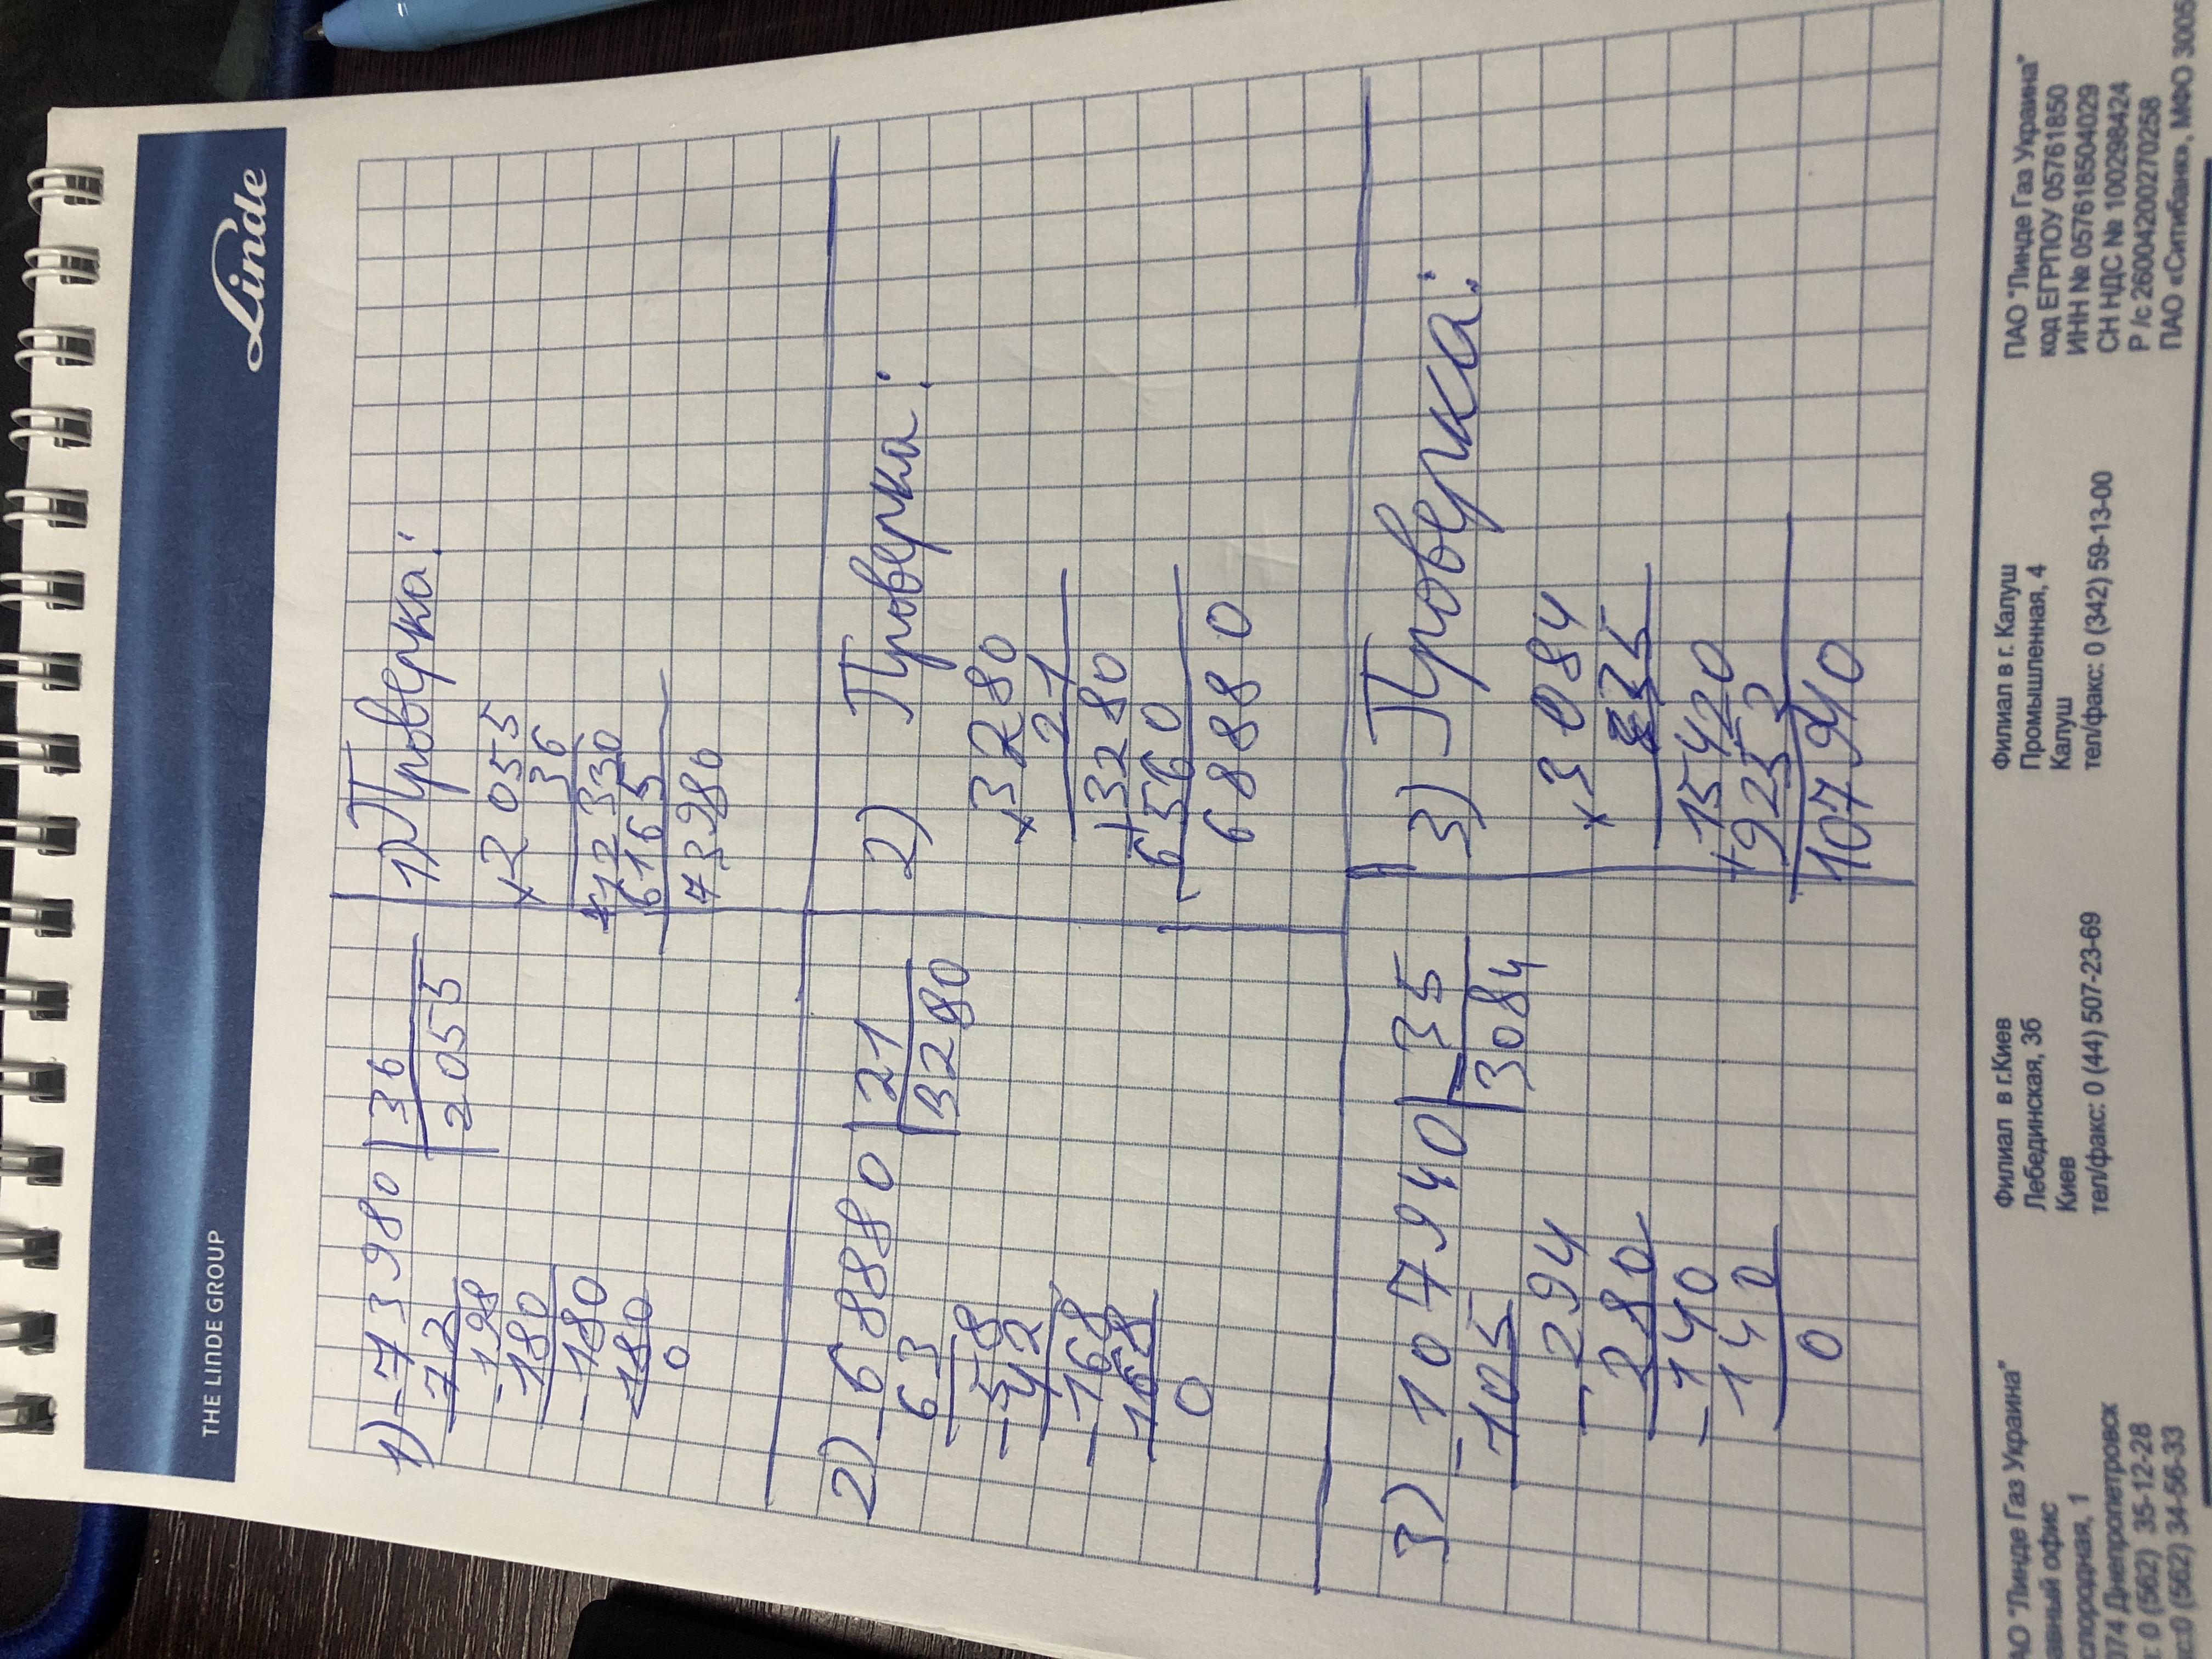 THE LINDE GROUP
Linde
1) -73980 | 36
72
2055
-198
-180
-180
180
0
1) Проверка:
×2055
36
+12330
6165
73980
2) -68880 | 21
63
3280
-58
-42
-168
168
0
2) Проверка:
×3280
21
+3280
6560
68880
3) 107940 | 35
-105
3084
-294
280
-140
140
0
3) Проверка:
×3084
35
15420
+9252
107940
ПАО "Линде Газ Украина"
Филиал в г.Киев
Лебединская, 3б
Киев
тел/факс: 0 (44) 507-23-69
Филиал в г. Калуш
Промышленная, 4
Калуш
тел/факс: 0 (342) 59-13-00
ПАО "Линде Газ Украина"
код ЕГРПОУ 05761850
ИНН № 057618504029
СН НДС № 100298424
Р /с 26004200270258
ПАО «Ситибанк», МФО 3005